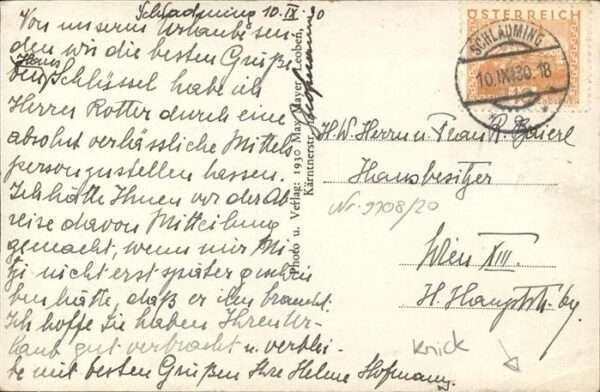 Schladming 10.IX.30
Von unserm Urlaube sen-
den wir die besten Grüße
Haus
den Schlüssel habe ich
Herrn Rotter durch eine
absolut verhässliche Mittels
person zustellen lassen.
Ich hätte Ihnen vor der Ab
reise davon Mitteilung
gemacht, wenn mir Mi
tzi nicht erst später geschrie
ben hätte, daß er ihn braucht.
Ich hoffe Sie haben Ihren Ur-
laub gut verbracht u. verblei-
be mit besten Grüßen Ihre Helene Hofmann
Photo u. Verlag: 1930 May Mayer Leoben,
Kärntnerstr.
Hofmann
ÖSTERREICH
SCHLADMING
10.IX.30.18
H.W. Herrn u. Frau R. Baierl
Hausbesitzer
Nr. 9908/20
Wien XIII.
H. Hauptstr.
Knick